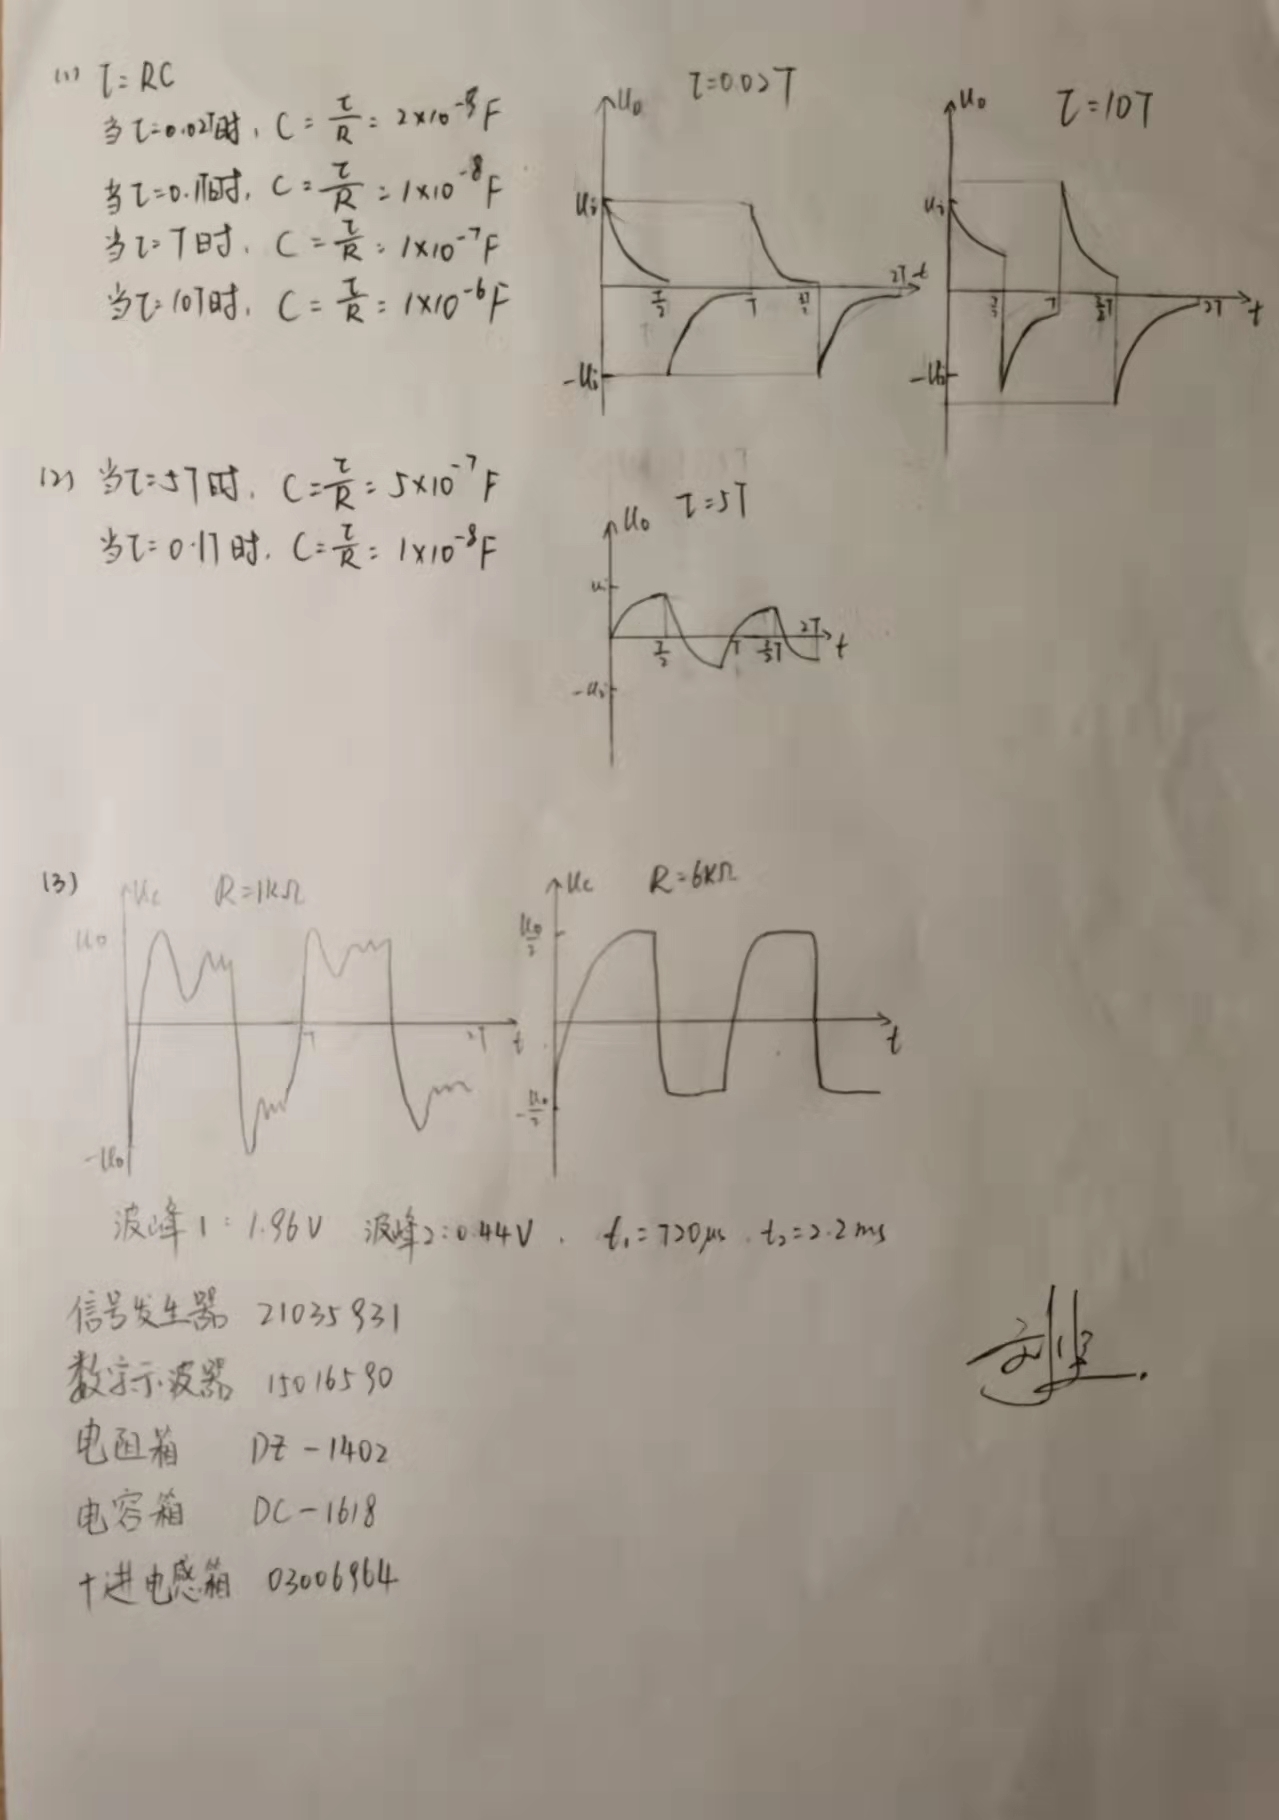 (1) τ=RC
当τ=0.02T时, C=τ/R=2×10⁻⁹F
当τ=0.1T时, C=τ/R=1×10⁻⁸F
当τ=T时, C=τ/R=1×10⁻⁷F
当τ=10T时, C=τ/R=1×10⁻⁶F
u₀ τ=0.02T
uᵢ
T/2 T 3T/2 2T t
-uᵢ
u₀ τ=10T
uᵢ
T/2 T 3/2T 2T t
-uᵢ
(2) 当τ=5T时, C=τ/R=5×10⁻⁷F
当τ=0.1T时, C=τ/R=1×10⁻⁸F
u₀ τ=5T
uᵢ
T/2 T 3/2T 2T t
-uᵢ
(3) uc R=1kΩ
u₀
T 2T t
-u₀
uc R=6kΩ
u₀/2
t
-u₀/2
波峰1: 1.96V 波峰2:0.44V. t₁=720μs. t₂=2.2ms
信号发生器 21035931
数字示波器 15016590
电阻箱 DZ-1402
电容箱 DC-1618
十进电感箱 03006964